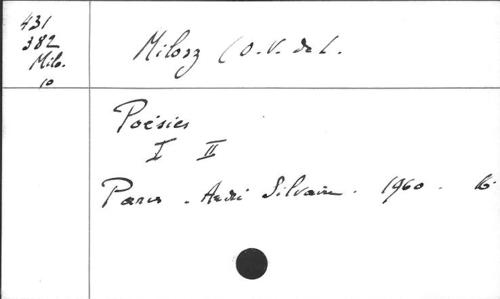 431
382
Milo.
10
Milosz (O.V. de L.
Poésies
I II
Paris. André Silvaire. 1960.